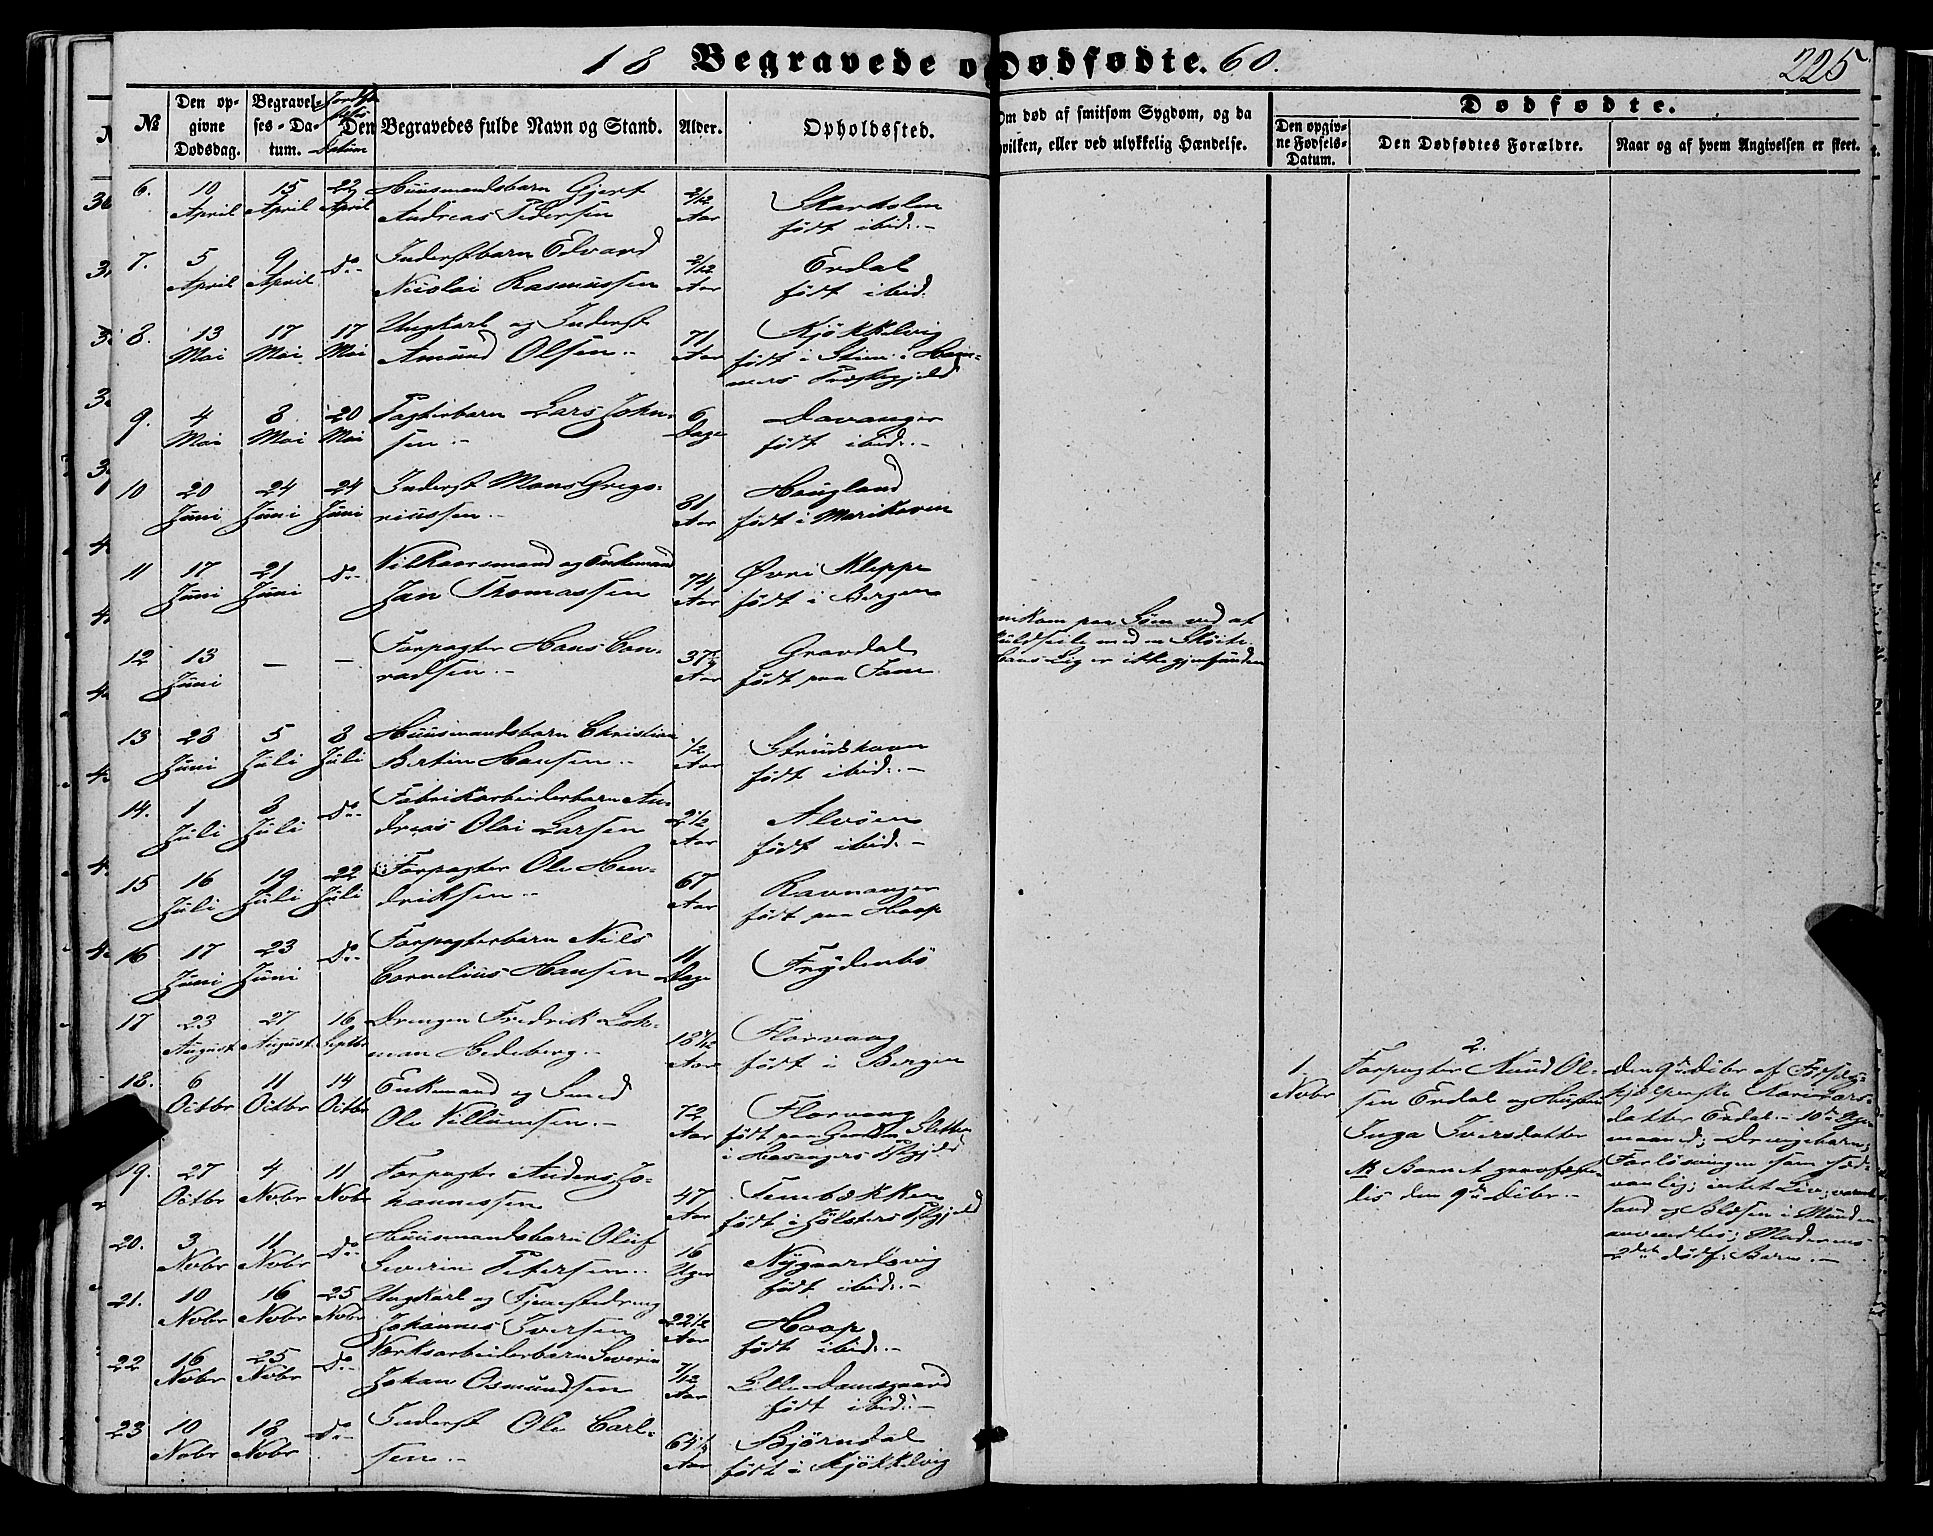 18 Begravede og Dødfødte. 60.
225
№ Den opgivne Dødsdag. Begravelses-Datum. Jordfæstelses Datum Den Begravedes fulde Navn og Stand. Alder. Opholdssted. Om død af smitsom Sygdom, og da hvilken, eller ved ulykkelig Hændelse.
Dødfødte.
Den opgivne Fødsels-Datum. Den Dødfødtes Forældre. Naar og af hvem Angivelsen er skeet.
6. 10 April 15 April 22 April Huusmandsbarn Gjert 2/12 Aar
Andreas Pedersen født ibid:-
7. 5 April 9 April Do- Inderstbarn Edvard 2/12 Aar Erdal
Nicolai Rasmussen født ibid.
8. 13 Mai 17 Mai 17 Mai Ungkarl og Inderst 71 Aar Kjøkkelvig
Amund Olsen.- født i Stien i Ham-
mers Præstegjeld
9. 4 Mai 8 Mai 20 Mai Pagterbarn Lars John- 6 Dage Davanger
sen.- født ibid:-
10 20 Juni 24 Juni 24 Juni Inderst Mons Grego- 81 Aar Haugland
riussen.- født i
11 17 Juni 21 Juni Do- Vilkaarsmand og Enkemand 74 Aar Øvre Kleppe
Jan Thomassen født i Bergen
12 13 Juni — — Forpagter Hans Con- 37½ Aar Gravdal
radsen.- født paa Fane
omkom paa Søen ved at
kuldseile med en Skøite.
Hans Lig er ikke gjenfunden
13 28 Juni 5 Juli 8 Juli Huusmandsbarn Christian ½ Aar Strudshavn
Bertin Hansen.- født ibid:-
14. 1 Juli 8 Juli Do- Fabrikarbeiderbarn An- 2½ Aar Alvøen
dreas Olai Larsen født ibid:-
15 16 Juli 19 Juli 22 Juli Forpagter Ole Hen- 67 Aar Ravnanger
driksen.- født paa Hoop
16 17 Juni 23 Juni Do- Forpagterbarn Nils 11 Dage Frydenbø
Cornelius Hansen
17 23 August 27 August 16 Septbr Drengen Fredrik Loh- Aar Florvaag
man Hedeberg.- født i Bergen
18. 6 Octbr 11 Octbr 14 Octbr Enkemand og Smed 72 Aar Florvaag
Ole Villumsen.- født paa Gaarden Sletten
i Hosangers Pgjeld
19. 27 Octbr 4 Novbr 11 Novbr Forpagter Anders Jo- 47 Aar
hannessen født i Jølsters Pgjeld
20. 3 Novbr 11 Novbr Do- Huusmandsbarn Oluf 16 Uger Nygaardsvig
Severin Petersen.- født ibid:-
21. 10 Novbr 16 Novbr 25 Novbr Ungkarl og Tjenestedreng 22½ Aar Hoop
Johannes Iversen født ibid:-
22 16 Novbr 25 Novbr Do- Værksarbeiderbarn Severin 7/12 Aar Lille Damsgaard
Johan Osmundsen født ibid:-
23 10 Novbr 18 Novbr Do- Inderst Ole Carl- Aar Bjørndal
sen.- født i Kjøkkelvig
1. Novbr
2.
Forpagter Knud Ol-
sen Erdal og Hustru
Inga Iversdatter
Barnet
den 9de Decbr.-
Den 9de Decbr af Fødsels-
hjelperske Kari Lars-
datter Erdal.- 10de Uge
maaned; Drengebarn;
Forløsningen som sæd-
vanlig; intet Liv; varmt
Vand og Blæsen i Munden
anvendtes; Moderens
2det dødf: Barn.-